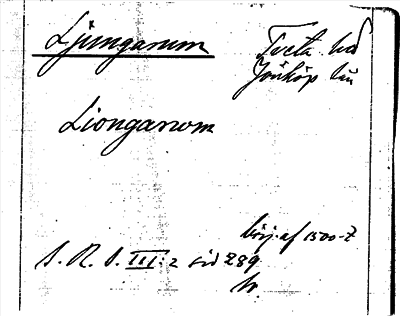 Ljungarum Tveta hd
Jönköp. län
Liongarwm
börj. af 1500-t
S. R. S. III:2 sid 289